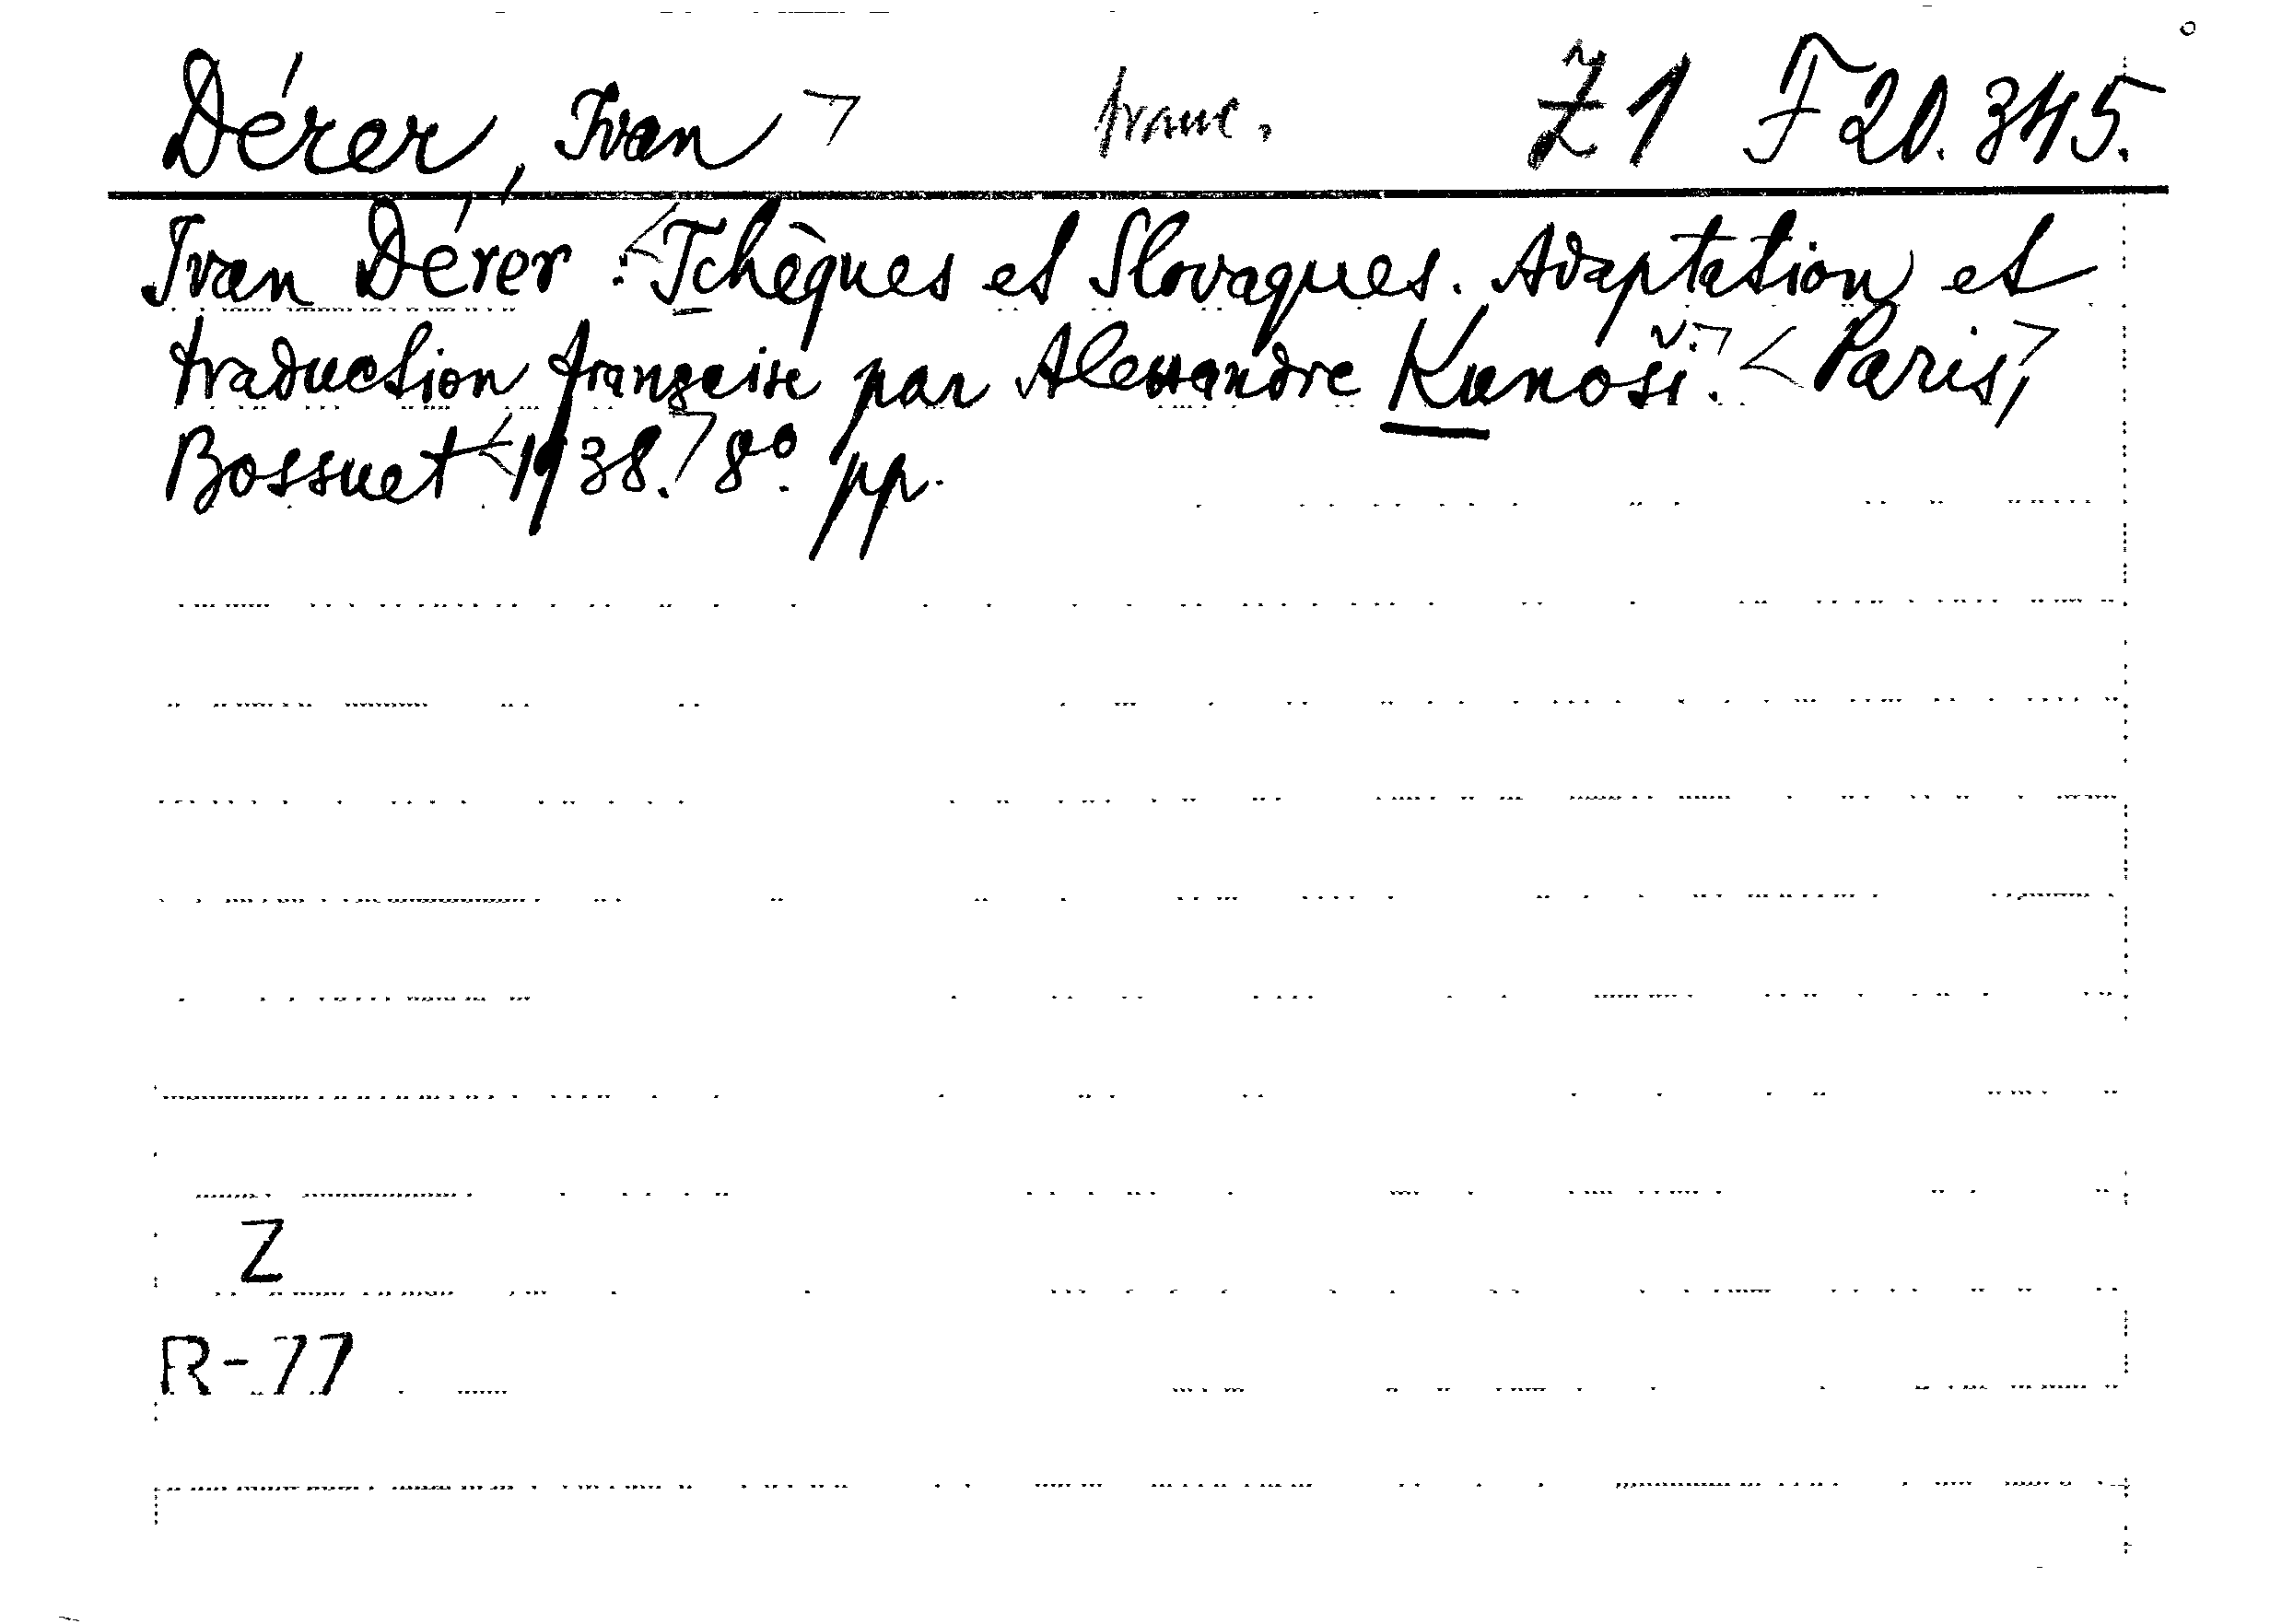 Dérer, Ivan franc. Z 1 F 20.345.
Ivan Dérer : Tchèques et Slovaques. Adaptation et
traduction française par Alessandre Kunoši. Paris,
Bossuet 1938. 8°. pp.
Z
R-77